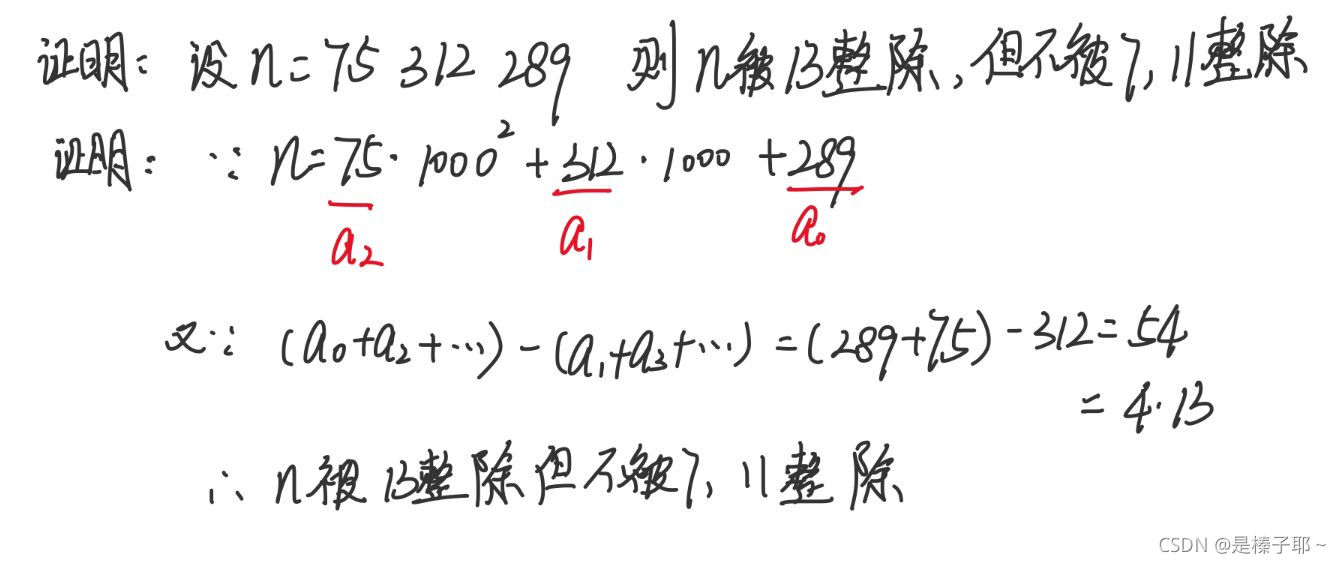 证明: 设 n=75 312 289 则 n被13整除,但不被7,11整除
证明: ∵ n=75·1000²+312·1000+289
a₂ a₁ a₀
又∵ (a₀+a₂+···)-(a₁+a₃+···)=(289+75)-312=54
=4·13
∴ n被13整除但不被7,11整除
CSDN @是榛子耶~